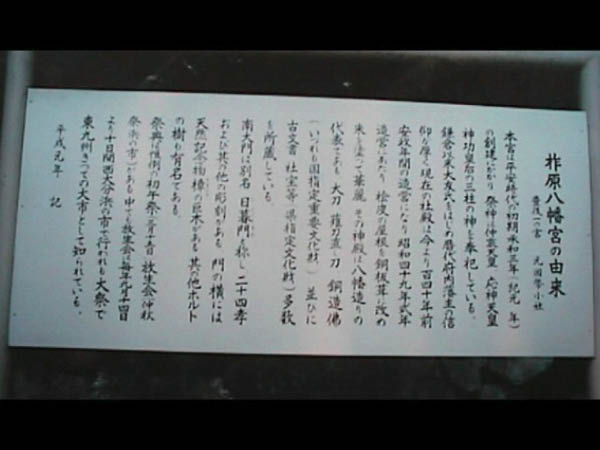 柞原八幡宮の由来
豊後一宮 元国幣小社
本宮は平安時代の初期承和三年(紀元 年)
の創建にかかり 祭神は仲哀天皇 応神天皇
神功皇后の三柱の神を奉祀している。
鎌倉以来大友氏をはじめ歴代府内藩主の信
仰が厚く現在の社殿は今より百四十年前
安政年間の造営になり 昭和四十九年式年
造営にあたり 桧皮の屋根を銅板葺に改め
華麗 その神殿は八幡造りの
代表である 大刀 薙刀直し刀 銅造佛
(いづれも国指定重要文化財) 並びに
古文書 社宝等(県指定文化財)多数
を所蔵している。
南大門は別名 日暮門と称し 二十四孝
および其の他の彫刻がある 門の横には
天然記念物樟の巨木がある 其の他ホルト
の樹も有名である。
祭典は恒例の初午祭 放生会 仲秋
祭 浜の市 がある 中でも放生会は毎年九月十四日
より十日間西大分浜の市で行われる大祭で
東九州きっての大市として知られている。
平成元年 記